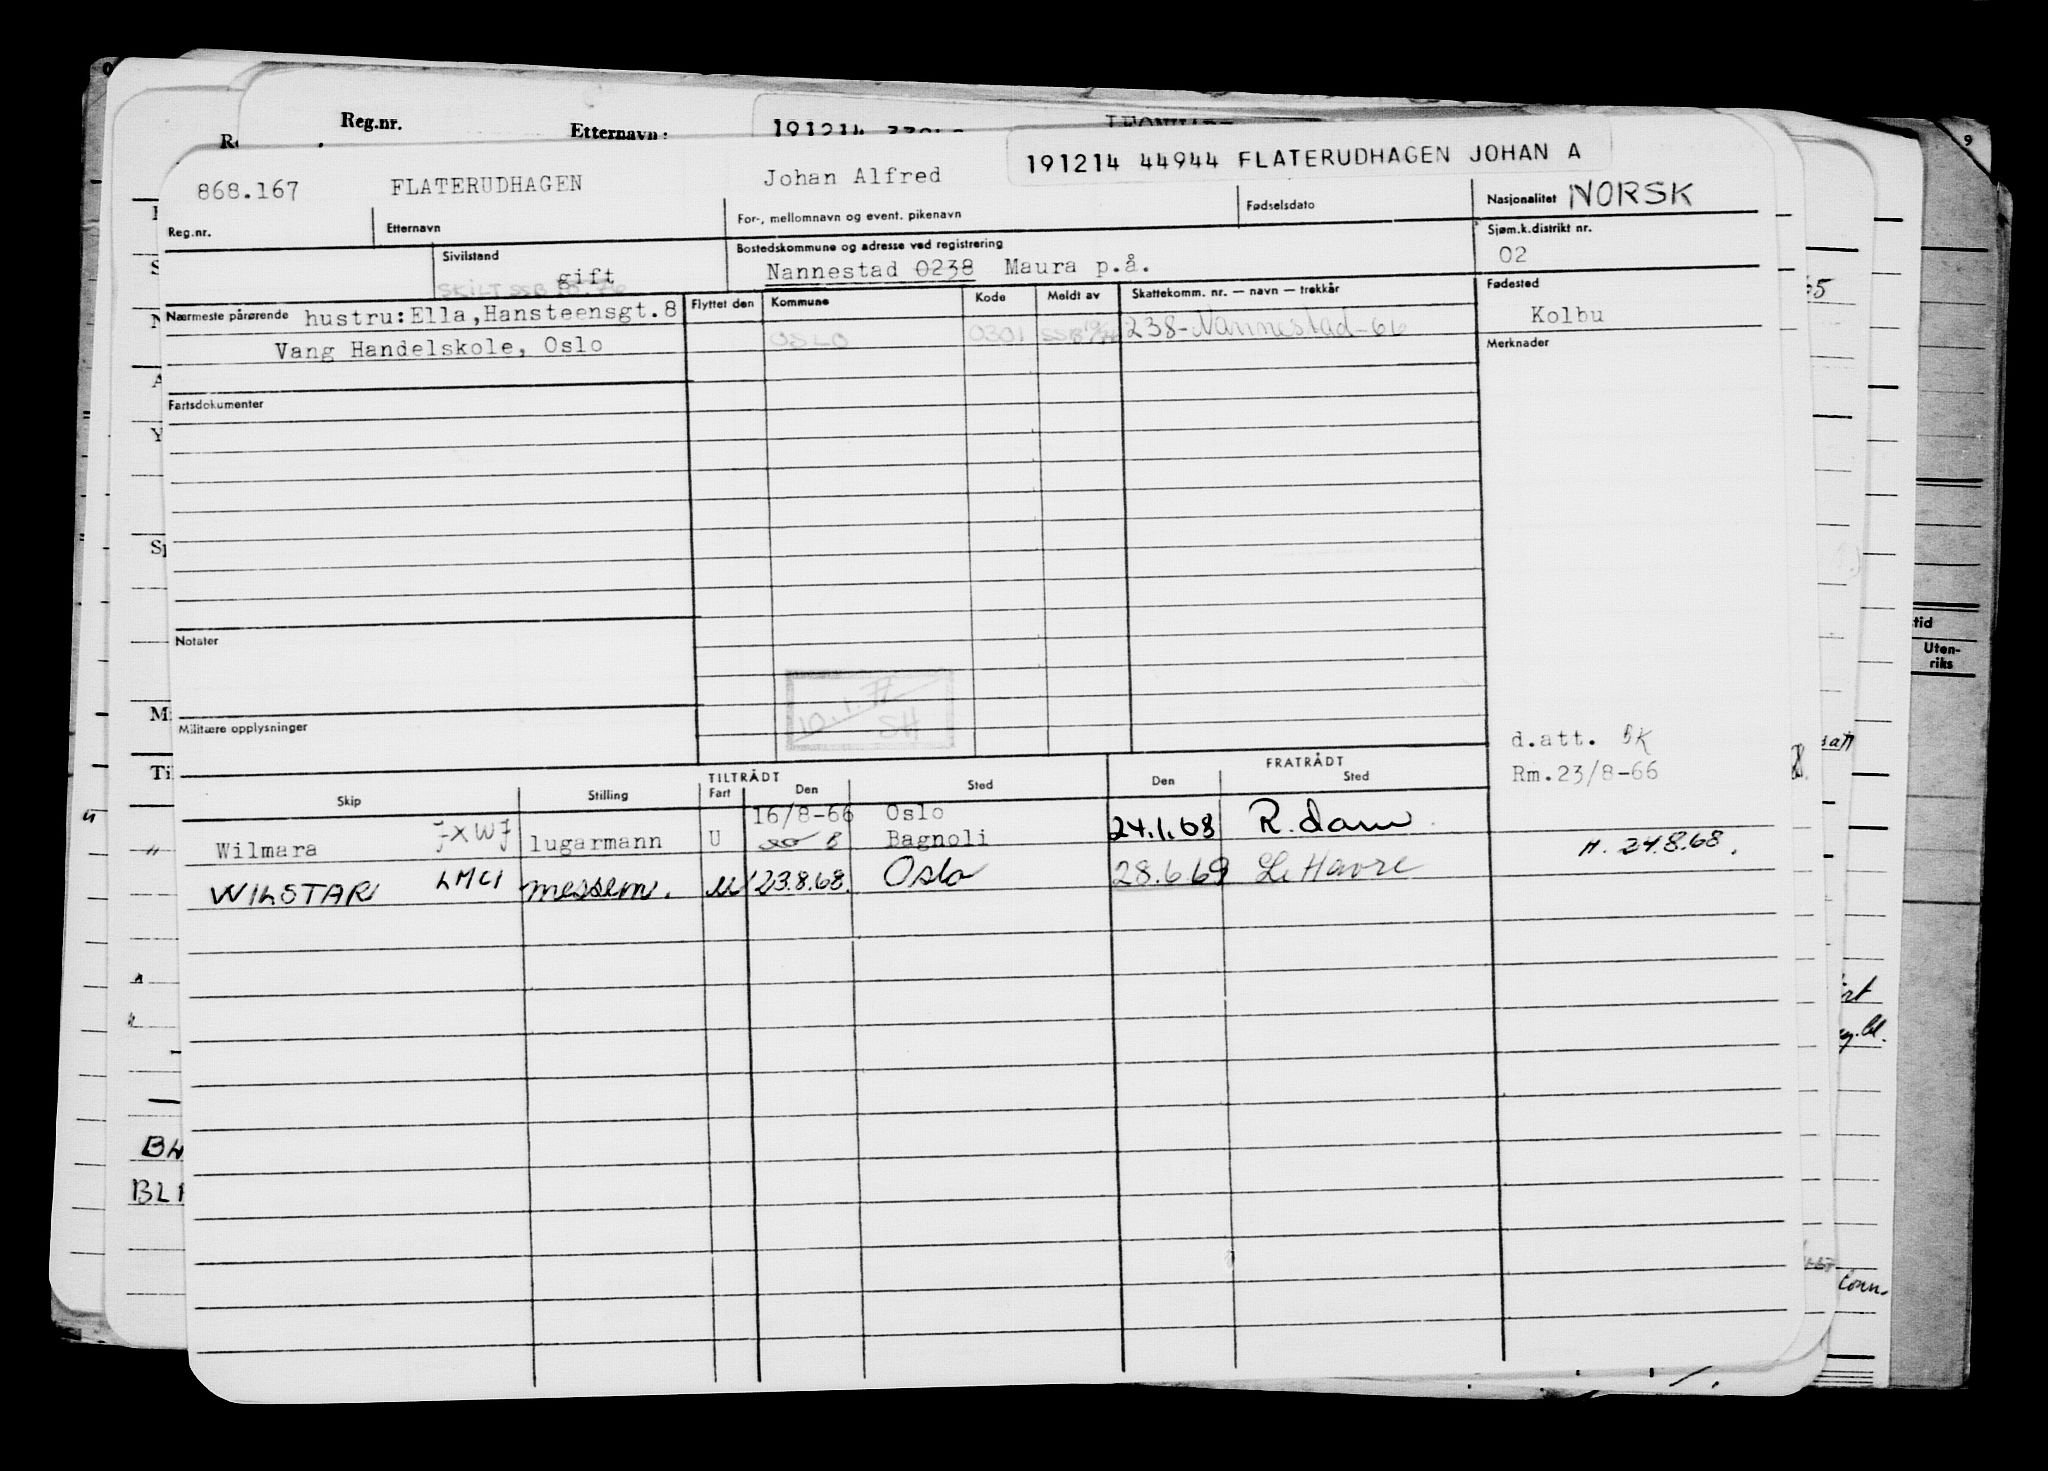 Reg.nr. Etternavn: 191214
868.167 FLATERUDHAGEN Johan Alfred 191214 44944 FLATERUDHAGEN JOHAN A
Reg.nr. Etternavn For-, mellomnavn og event. pikenavn Fødselsdato Nasjonalitet NORSK
Sivilstand gift Bostedskommune og adresse ved registrering Sjøm.k.distrikt nr.
SKILT SSB Nannestad 0238 Maura p.å. 02
Nærmeste pårørende hustru:Ella,Hansteensgt.8 Flyttet den Kommune Kode Meldt av Skattekomm. nr. — navn — trekkår Fødested
Vang Handelskole, Oslo OSLO 0301 SSB 238-Nannestad-66 Kolbu
Merknader
Fartsdokumenter
Notater
10.1.77
SH
Militære opplysninger
d.att. BK
Rm.23/8-66
TILTRÅDT FRATRÅDT
Skip Stilling Fart Den Sted Den Sted
16/8-66 Oslo
Wilmara JXWJ lugarmann U 8 Bagnoli 24.1.68 R.dam. M. 24.8.68.
WILSTAR LMCI messem. u 23.8.68. Oslo 28.6.69 Le Havre
9
tid
Uten-
riks